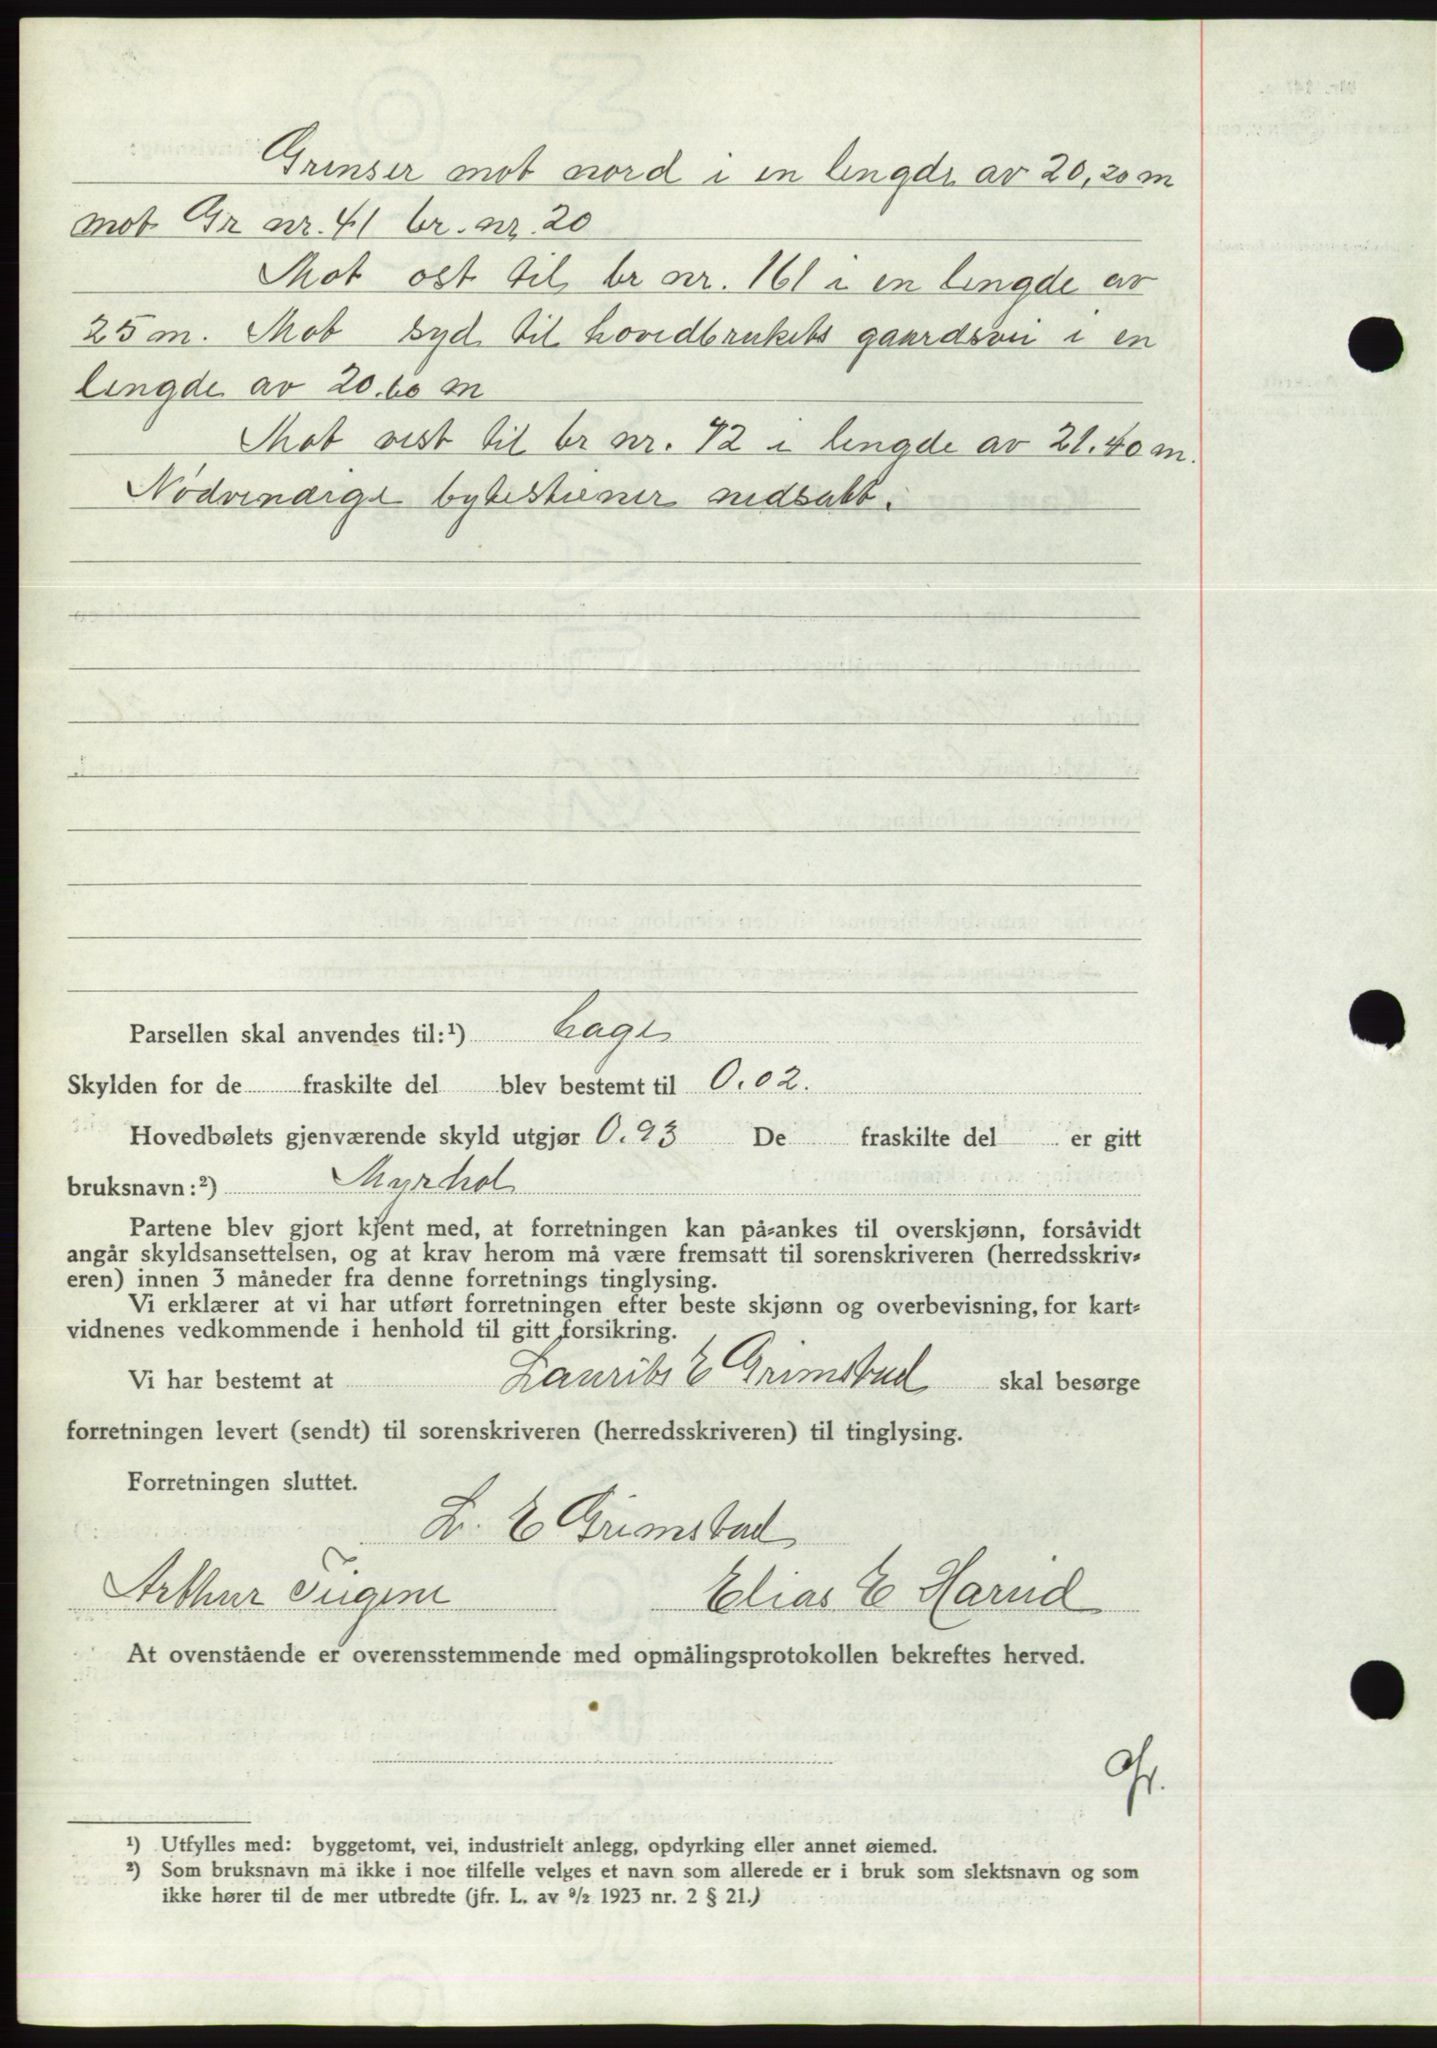 Grenser mot nord i en lengde av 20,20 m
mot Gr nr. 41 br. nr. 20
Mot ost til br nr. 161 i en lengde av
25 m. Mot syd til hovedbrukets gaardsvei i en
lengde av 20.60 m
Mot vest til br nr. 42 i lengde av 21.40 m.
Nødvendige bytesteiner nedsatt.
Parsellen skal anvendes til:¹) hage
Skylden for de fraskilte del blev bestemt til 0.02.
Hovedbølets gjenværende skyld utgjør 0.93 De fraskilte del er gitt
bruksnavn:²) Myrhol
Partene blev gjort kjent med, at forretningen kan på-ankes til overskjønn, forsåvidt
angår skyldsansettelsen, og at krav herom må være fremsatt til sorenskriveren (herredsskriv-
eren) innen 3 måneder fra denne forretnings tinglysing.
Vi erklærer at vi har utført forretningen efter beste skjønn og overbevisning, for kart-
vidnenes vedkommende i henhold til gitt forsikring.
Vi har bestemt at Laurits E Grimstad skal besørge
forretningen levert (sendt) til sorenskriveren (herredsskriveren) til tinglysing.
Forretningen sluttet.
L. E Grimstad
Arthur Elias E Hareid
At ovenstående er overensstemmende med opmålingsprotokollen bekreftes herved.
¹) Utfylles med: byggetomt, vei, industrielt anlegg, opdyrking eller annet øiemed.
²) Som bruksnavn må ikke i noe tilfelle velges et navn som allerede er i bruk som slektsnavn og som
ikke hører til de mer utbredte (jfr. L. av 9/2 1923 nr. 2 § 21.)